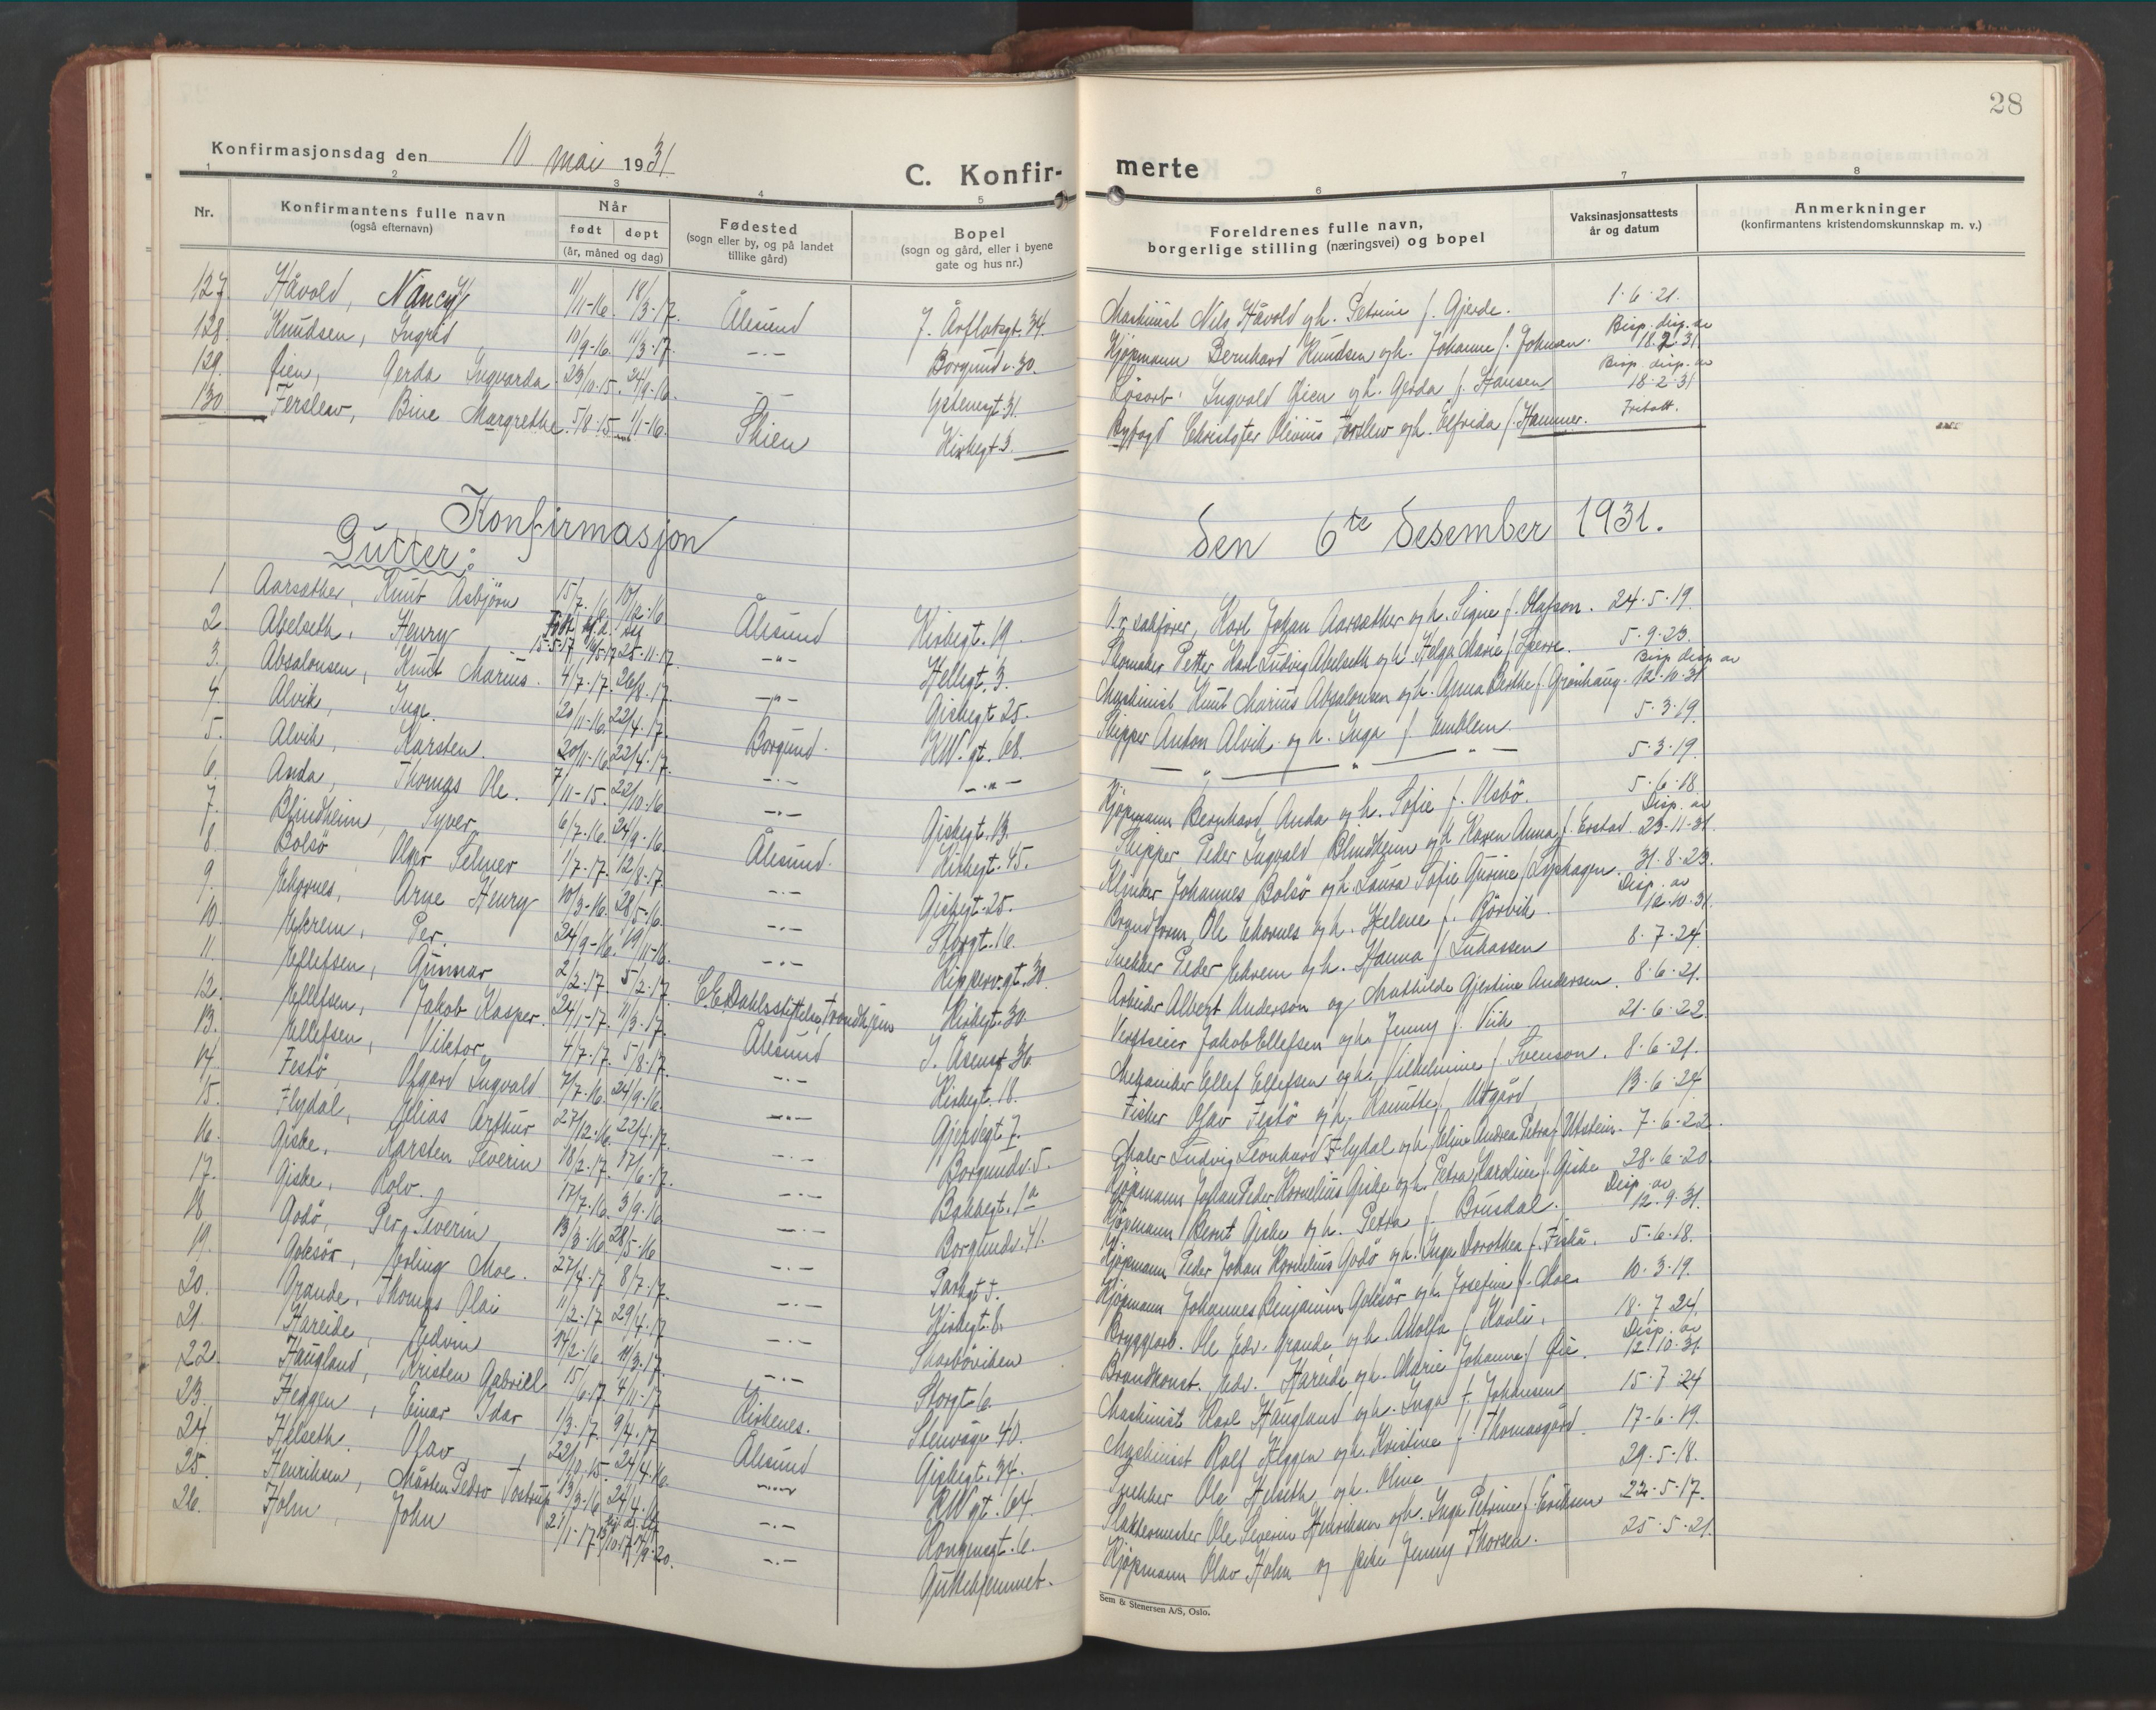 28
Konfirmasjonsdag den 10 mai 1931
C. Konfir-
merte
1 2 3 4 5 6 7 8
Nr.
Konfirmantens fulle navn
(også efternavn)
Når
født døpt
(år, måned og dag)
Fødested
(sogn eller by, og på landet
tillike gård)
Bopel
(sogn og gård, eller i byene
gate og hus nr.)
Foreldrenes fulle navn,
borgerlige stilling (næringsvei) og bopel
Vaksinasjonsattests
år og datum
Anmerkninger
(konfirmantens kristendomskunnskap m. v.)
127. Håvold, Nancy 11/11-16. 18/3-17. Ålesund J. Årflotsgt. 34. Maskinist Nils Håvold og h. Petrine f. Gjerde. 1-6-21.
128. Knudsen, Ingrid 10/9-16. 11/3-17. -.- Borgundv. 30. Kjøpmann Bernhard Knudsen og h. Johanne f. Johnsen. Bisp. disp. av 18.2.31
129. Øien, Gerda Ingvarda 23/10-15. 24/9-16. -.- Ystenesgt. 31. Løsarb. Ingvald Øien og h. Gerda f. Hansen Bisp. disp. av 18-2-31
130. Ferslew, Bine Margrethe 5/8-15 1/1-16. Skien Kirkegt 3. Byfogd Christofer Olivius Ferslew og h. Elfrida f. Hammer. Fritatt.
Konfirmasjon den 6te desember 1931.
Gutter:
1 Aarsæther, Knut Asbjörn 15/7-16 10/12-16 Ålesund Kirkegt. 19. O.r. sakfører, Karl Johan Aarsæther og h. Signe f. Olafson. 24-5-19.
2. Abelseth, Henry 15-5-17 25-11-17. -"- Hellegt. 3. Skomaker Petter Karl Ludvig Abelseth og h. Helga Marie f. Sperre. 5-9-23.
3. Absalonsen, Knut Marius. 4/7-17. 26/8-17. -"- Giskegt. 25. Maskinist Knut Marius Absalonsen og h. Anna Berthe f. Grönhaug. Bisp disp av 12-10-31
4. Alvik, Inge. 20/11-16. 22/4-17. Borgund. K.W. gt. 68. Skipper Anton Alvik og h. Inga f. Emblem. 5-3-19.
5. Alvik, Karsten. 20/11-16. 22/4-17. -.- -"- -"- 5-3-19.
6. Anda, Thomas Ole. 7/11-15. 22/10-16 -.- Giskegt. 13. Kjöpmann Bernhard Anda og h. Sofie f. Aasbö. 5-6-18.
7. Blindheim, Syver 6/7-16. 24/9-16 Ålesund. Kirkegt. 45. Skipper Peder Ingvald Blindheim og h. Karen Anna f. Erstad. Disp. av 23-11-31.
8. Bolsö Olger Selmer 1/7-17. 12/8-17. -.- Giskegt. 25. Klinker Johannes Bolsö og h. Laura Sofie Gurine f. Lyshagen. 31-8-23.
9. Ekornes, Arne Henry 10/3-16. 28/5-16. -.- Storgt. 16. Brandform. Ole Ekornes og h. Helene f. Björvik. Disp. av 12-10-31.
10. Ekrem, Per. 24/9-16. 19/11-16. -.- Kipperv.gt. 30. Snekker Peder Ekrem og h. Hanna f. Lukassen 8-7-24.
11. Ellefsen, Gunnar 2/2-17. 5/2-17. C.E. Dahlsstiftelse, Trondhjem Kirkegt. 30. Arbeider Albert Anderson og Mathilde Gjertine Andersen. 8-6-21.
12. Ellefsen, Jakob Kasper. 24/1-17. 11/3-17. Ålesund I. Aasengt 36. Verftseier Jakob Ellefsen og h. Jenny f. Viik 21-6-22.
13. Ellefsen, Viktor 4/7-17. 5/8-17. -.- Kirkegt. 18. Mekaniker Ellef Ellefsen og h. Vilhelmine f. Svenson. 8-6-21.
14. Festö, Olgard Ingvald 7/7-16. 24/9-16. -.- Gjerdegt. 7. Fisker Olav Festö og h. Kanutte f. Utgård 13-6-24
15. Flydal, Elias Arthur 27/12-16. 22/4-17. -.- Borgundv. 5. Maler Ludvig Leonhard Flydal og h. Eline Andrea Petra f. Utstein. 7-6-22.
16. Giske, Karsten Severin 18/2-17. 17/6-17. -.- Bakkegt. 1a Kjöpmann Johan Peder Kornelius Giske og h. Petra Karoline f. Giske 28-6-20.
17. Giske, Rolv. 17/7-16. 3/9-16 -.- Borgundv. 41. Kjöpmann Bernt Giske og h. Petra f. Brusdal. Disp. av 12.9.31.
18 Godö, Per Severin, 13/3-16. 28/5-16 -.- Parkgt 5. Kjöpmann Peder Johan Kornelius Godö og h. Inga Dorothea f. Fiskå. 5-6-18.
19. Goksör, Erling Moe. 27/4-17 8/7-17. -.- Kirkegt. 6. Kjöpmann Johannes Benjamin Goksör og h. Josefine f. Moe 10-3-19.
20. Grande, Thomas Olai 11/2-17 29/4-17 -.- Skarbövikен Bryggearb. Ole Edv. Grande og h. Adolfa f. Kaali. 18-7 24.
21. Hareide, Edvin 14/2-16. 11/3-17. -.- Storgt. 6. Brandkonst. Edv. Hareide og h. Marie Johanna f. Øie. Disp. av 12-10-31
22. Haugland, Kristen Gabriel 15/6-17. 4/11-17 Kirkenes. Stenvågv 40. Maskinist Karl Haugland og h. Inga f. Johansen 15-7-24
23. Heggen, Einar Idar 1/3-17. 9/4-17 Ålesund Giskegt. 34. Maskinist Rolf Heggen og h. Kristine f. Thomasgård. 17-6-19.
24. Helseth. Olav 22/10-15. 24/4-16. K.W. gt. 64. Snekker Ole Helseth og h. Oline 29-5-18.
25. Henriksen, Mårten Pedro Tostrup 13/3-16 24/4-16 -.- Kongensgt. 16. Slaktermester Ole Severin Henriksen og h. Inga Petrine f. Eriksen 22-5-17.
26. Holm, John 21/1-17 19/9-20. -.- Guttehjemmet. Kjöpmann Olav Holm og pike Jenny Thorsen. 25-5-21.
Sem & Stenersen A/S, Oslo.